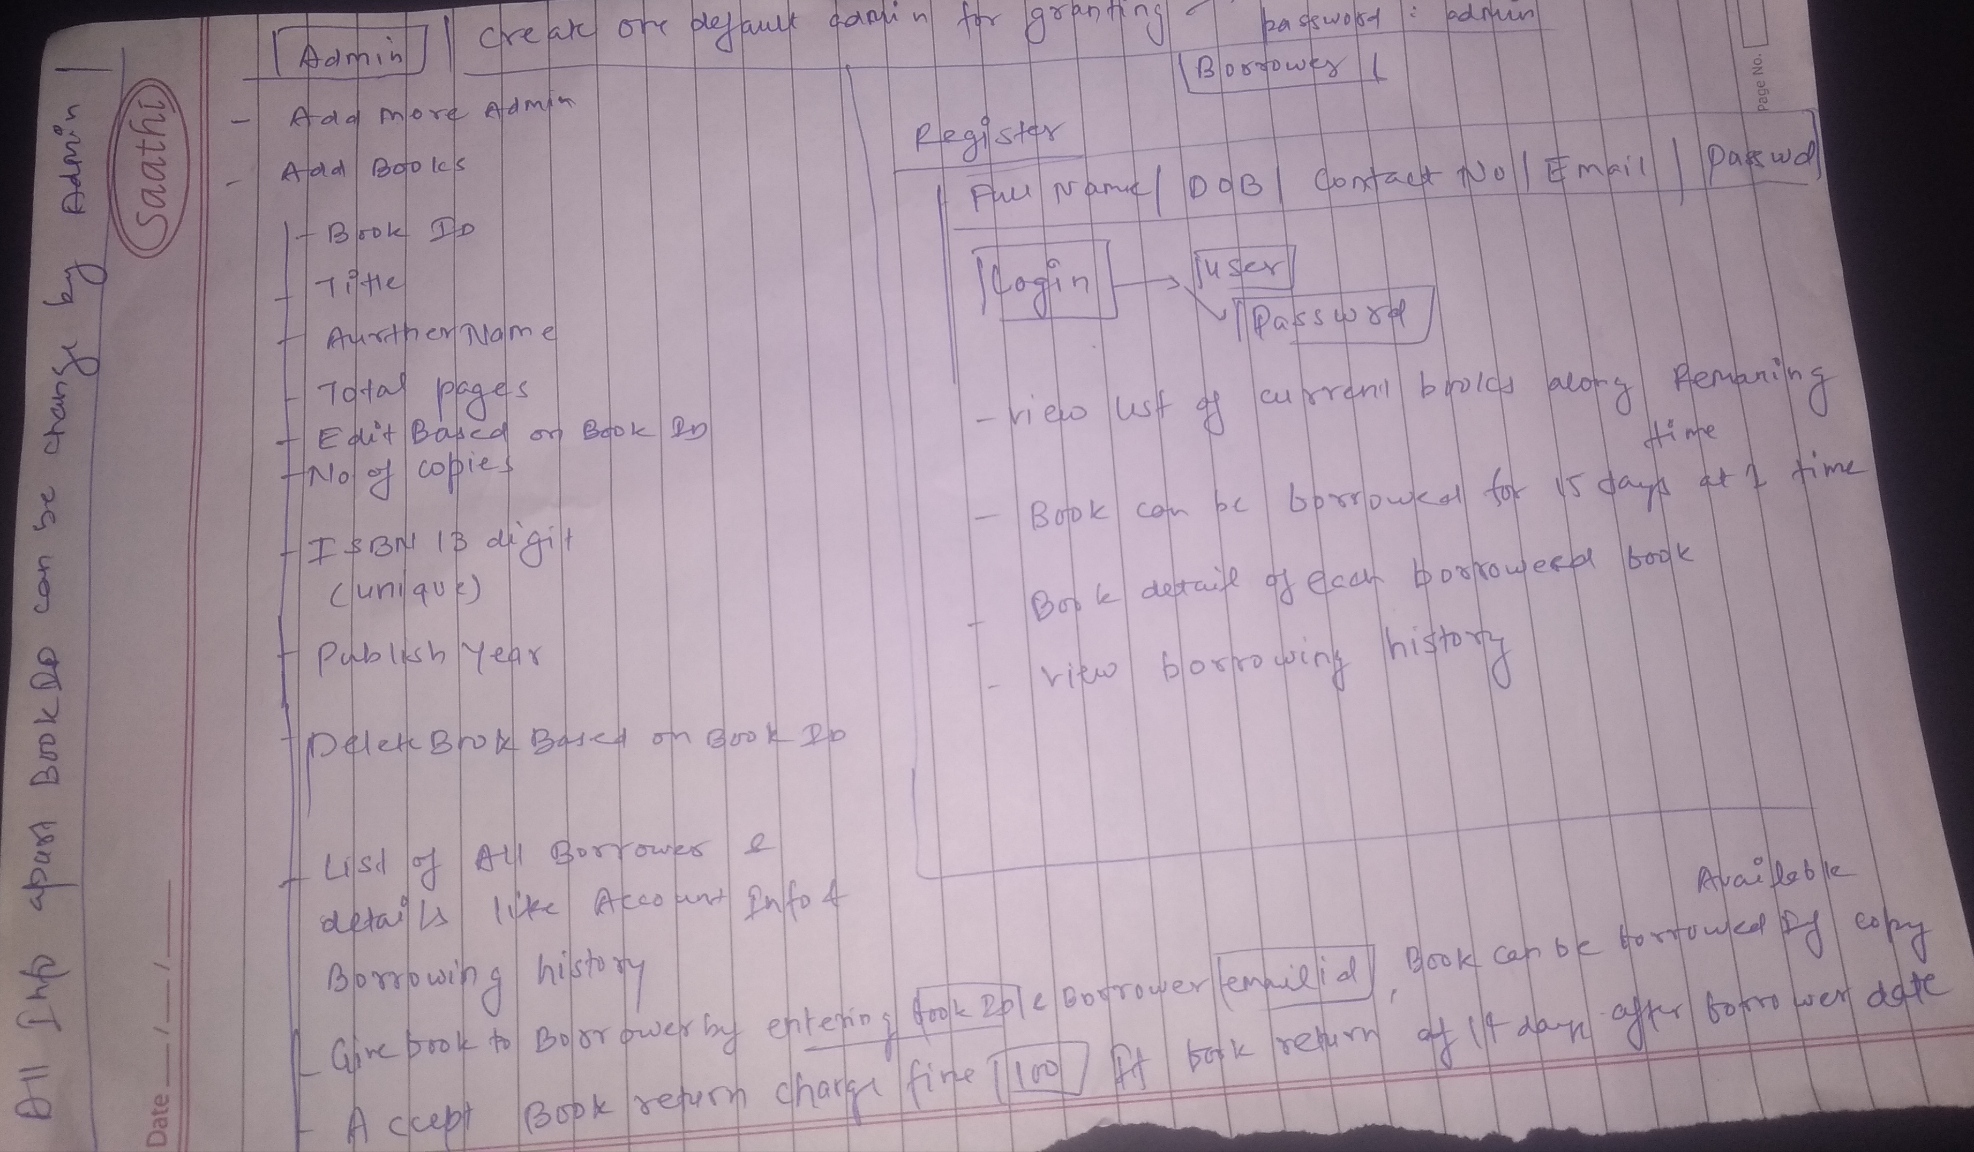 Admin Create one default admin for granting - password : admin
- Add more Admin
- Add Books
- Book ID
- Title
- AurtherName
- Total pages
- Edit Based on Book ID
- No of copies
- ISBN 13 digit
(unique)
- Publish Year
- Delete Book Based on Book ID
- List of All Borrower &
details like Account Info &
Borrowing history
- Give book to Borrower by entering book ID & Borrower email id, Book can be borrowed If copy
Available
- Accept Book return charge fine 100 If book return of 14 days after borrower date
Borrower
Register
Full Name | DOB | Contact No | Email | Passwd
Login → user
Password
- view list of current books along Remaning
time
- Book can be borrowed for 15 days at 1 time
- Book detail of each borrowered book
- view borrowing history
All Info apart Book ID can be change by Admin
Saathi
Date __/__/__
Page No.